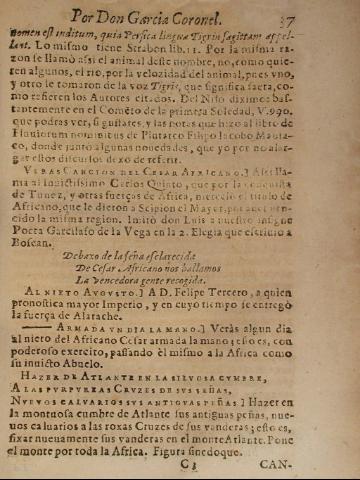 Por Don Garcia Coronel. 37
nomen est inditum, quia Persica linguæ Tigrin sagittam appel-
lant. Lo mismo tiene Strabon lib. 11. Por la misma ra-
zon se llamò assi el animal deste nombre, no, como quie-
ren algunos, el rio, por la velozidad del animal, pues vno,
y otro le tomaron de la voz Tigris, que significa saeta, co-
mo refieren los Autores citados. Del Nilo diximos bas-
tantemente en el Comèto de la primera Soledad, V. 990.
que podras ver, si gustares, y las notas que hizo al libro de
fluuiorum nominibus de Plutarco Filipo Iacobo
donde junto algunas nouedades, que yo por no alar-
gar estos discursos dexo de referir.
VERAS CANCION DEL CESAR AFRICANO.] Assi lla-
ma al inuictissimo Carlos Quinto, que por la conquista
de Tunez, y otras fuerças de Africa, merecio el titulo de
Africano, que le dieron a Scipion el Mayor, por auer ven-
cido la misma region. Imitò don Luis a nuestro insigne
Poeta Garcilaso de la Vega en la 2. Elegia que escriuio a
Boscan.
Debaxo de la seña esclarecida
De Cesar Africano nos hallamos
La vencedora gente recogida.
AL NIETO AVGVSTO.] A D. Felipe Tercero, a quien
pronostica mayor Imperio, y en cuyo tiempo se entregò
la fuerça de Alarache.
ARMADA VN DIA LA MANO.] Veràs algun dia
al nieto del Africano Cesar armada la mano; esto es, con
poderoso exercito, passando èl mismo a la Africa como
su inuicto Abuelo.
HAZER DE ATLANTE EN LA SILVOSA CVMBRE,
A LAS PVRPVREAS CRVZES DE SVS SEÑAS,
NVEVOS CALVARIOS SVS ANTIGVAS PEÑAS.] Hazer en
la montuosa cumbre de Atlante sus antiguas peñas, nue-
uos caluarios a las roxas Cruzes de sus vanderas; esto es,
fixar nueuamente sus vanderas en el monte Atlante. Pone
el monte por toda la Africa. Figura sinedoque.
C 3 CAN-